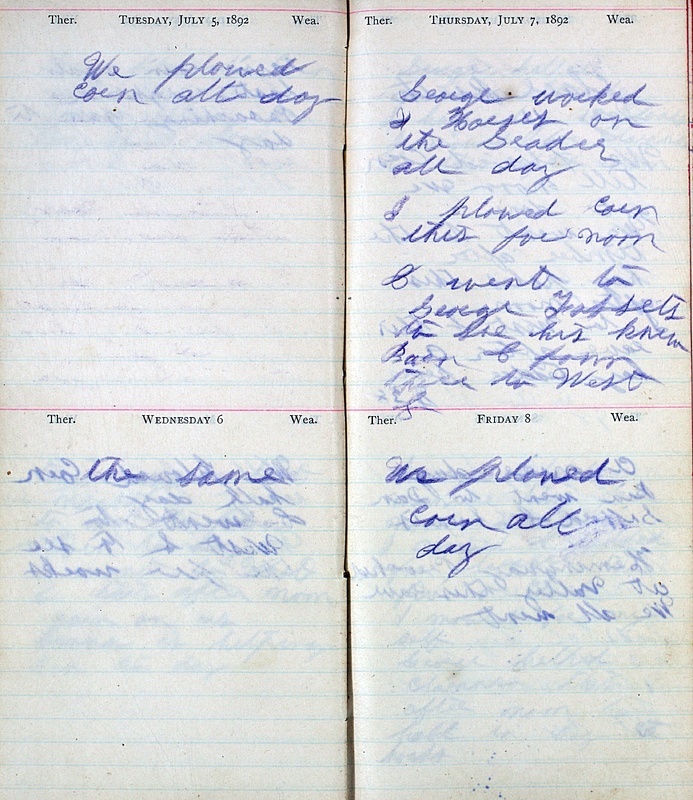 Ther. TUESDAY, JULY 5, 1892 Wea.
We plowed
Corn all day
Ther. WEDNESDAY 6 Wea.
the same
Ther. THURSDAY, JULY 7, 1892 Wea.
George worked
Horses on
the Seader
all day
I plowed Corn
this fore noon
I went to
George
to see his knew
Barn & from
there to West
Ther. FRIDAY 8 Wea.
We plowed
Corn all
day